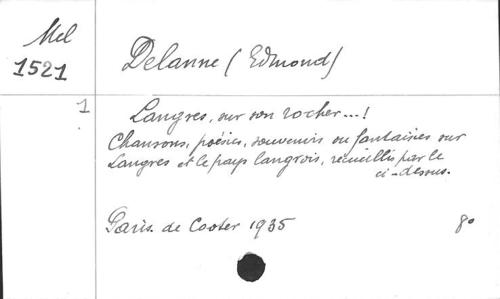 Mel
1521
Delanne (Edmond)
1
Langres, sur son rocher...!
Chansons, poésies, souvenirs ou fantaisies sur
Langres et le pays langrois, recueillis par le
ci-dessus.
Paris. de Cooter 1935
8°